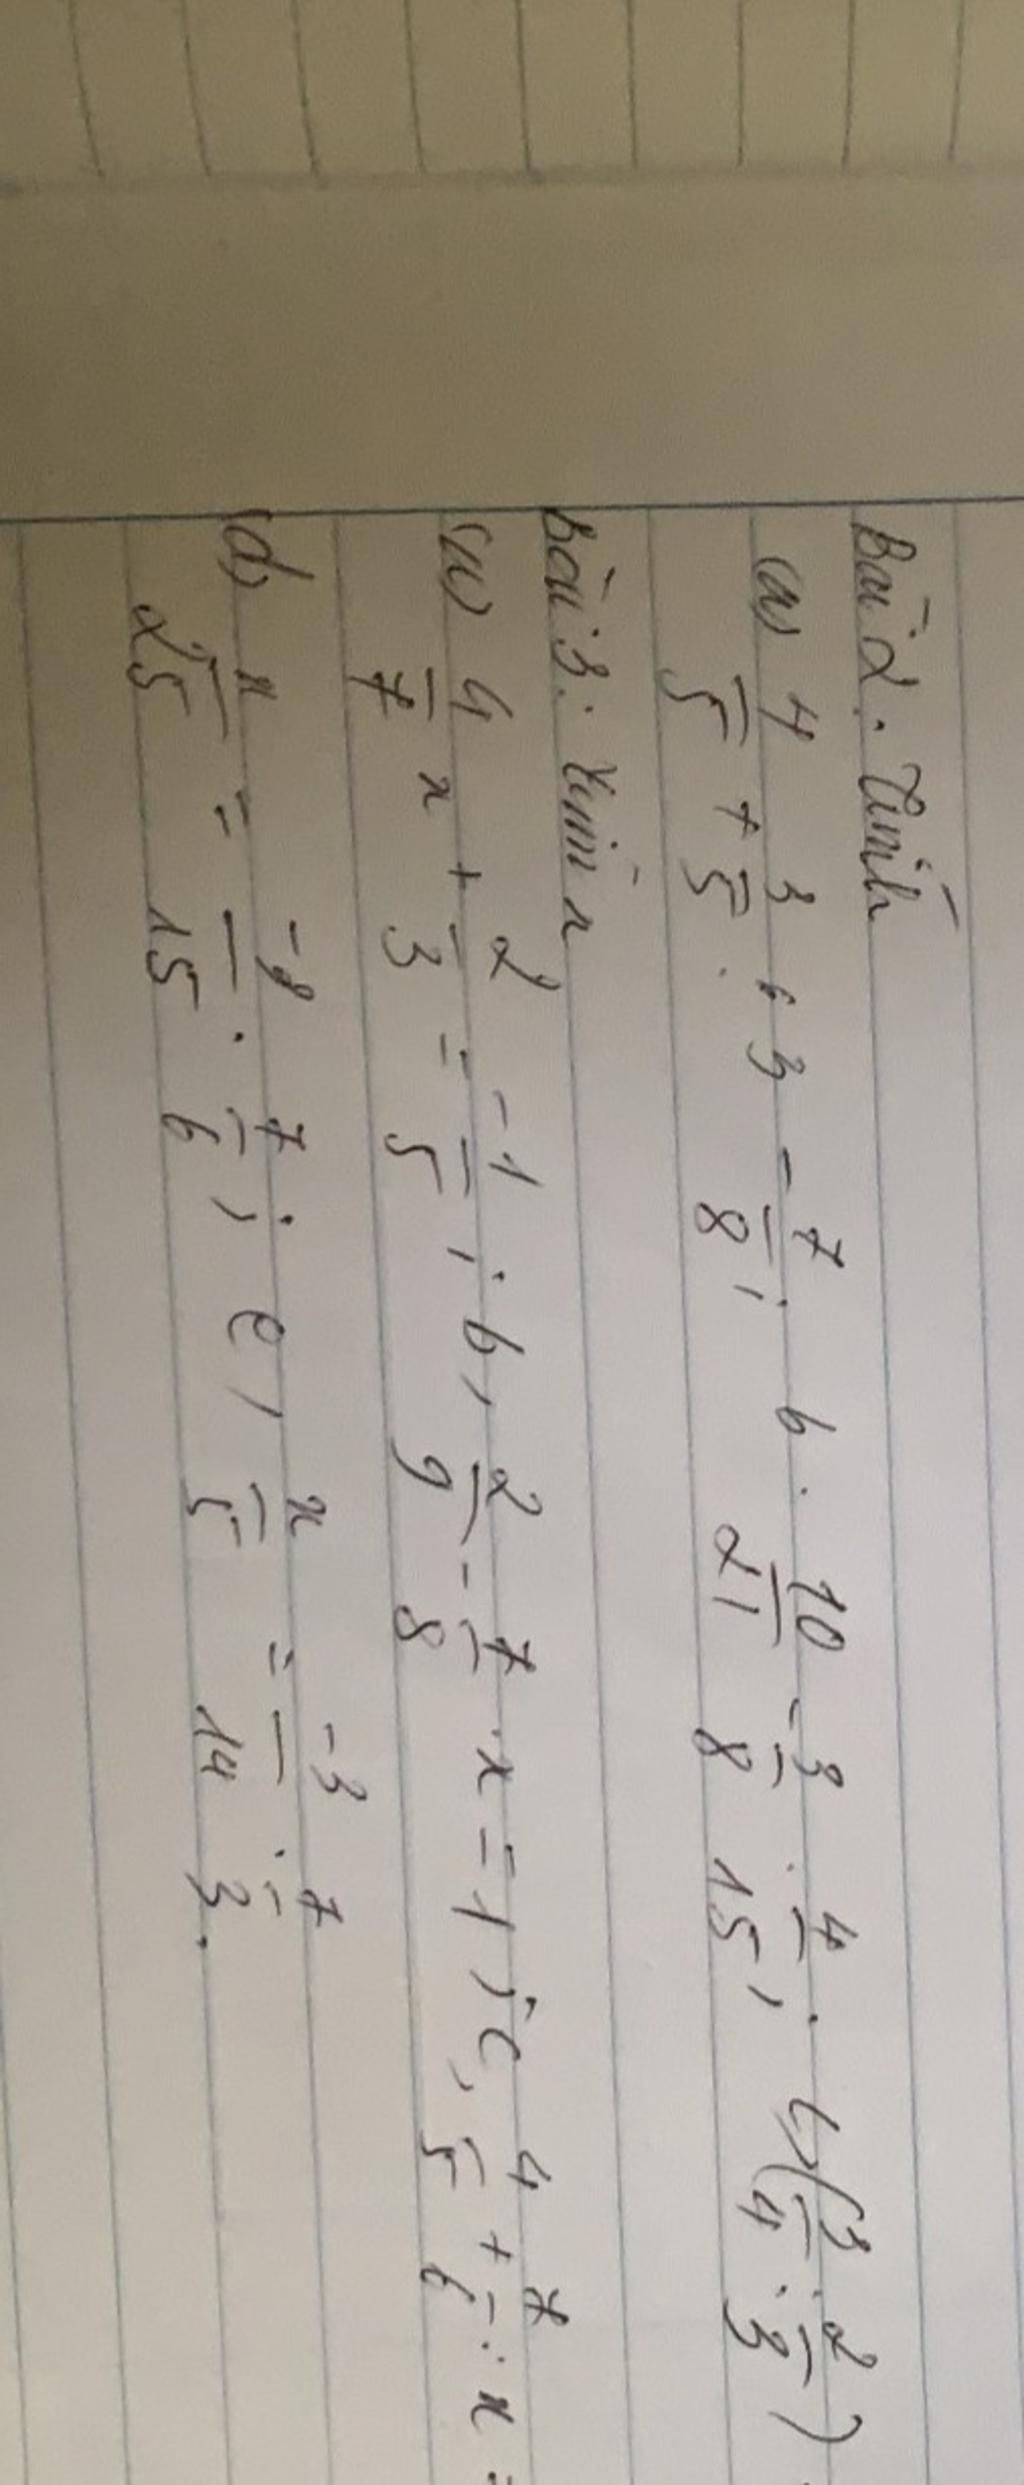 Bài 2. Tính
a) 4/5 + 3/5 . 63 - 7/8 ; b. 10/21 - 3/8 . 4/15 ; c) (3/4 : 2/3)
Bài 3: Tìm x
a) 4/7 x + 2/3 = -1/5 ; b, 2/9 - 7/8 . x = 1 ; c, 4/5 + 7/6 : x =
d) x/25 = -8/15 . 7/6 ; e, x/5 = -3/14 . 7/3 .